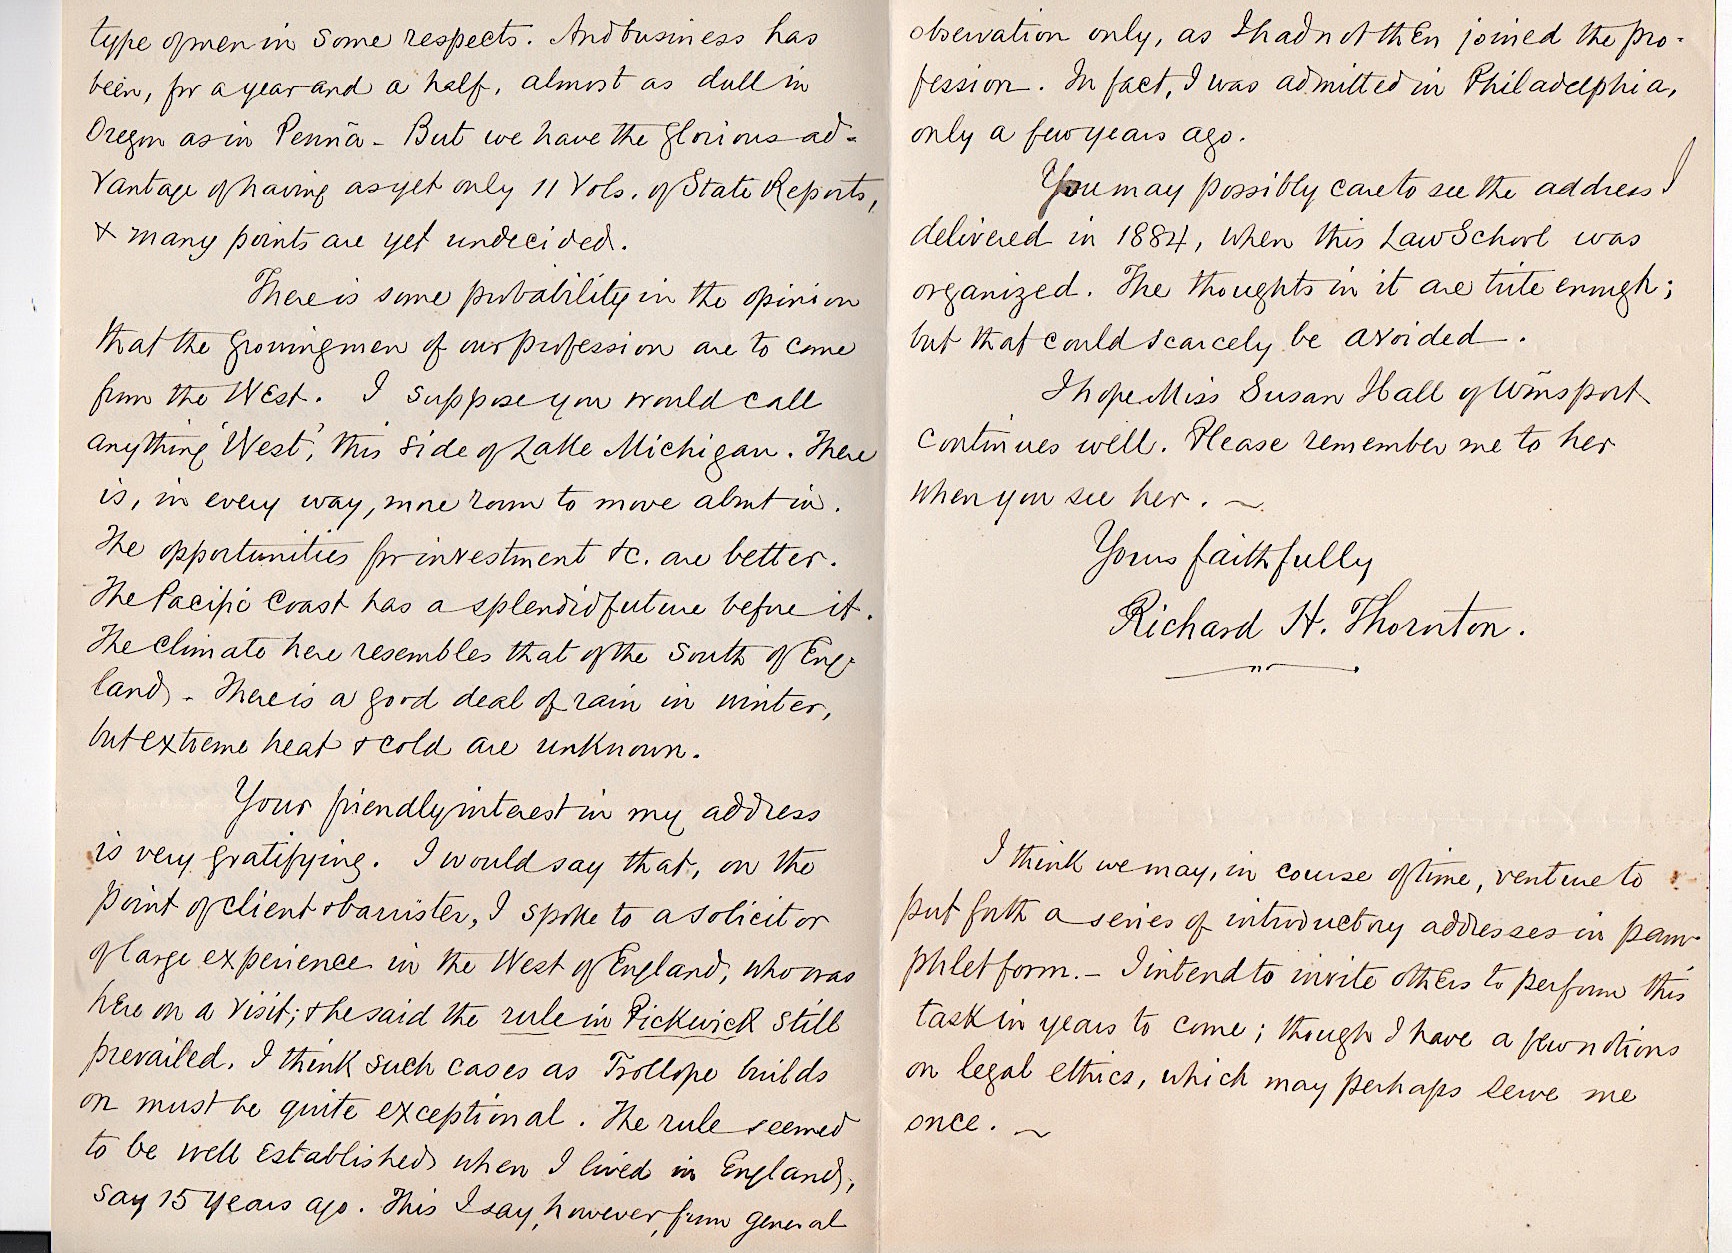 type of men in some respects. And business has
been, for a year and a half, almost as dull in
Oregon as in Penna̅ - But we have the glorious ad-
vantage of having as yet only 11 Vols. of State Reports,
& many points are yet undecided.
There is some probability in the opinion
that the growing men of our profession are to come
from the West. I suppose you would call
anything 'West', this side of Lake Michigan. There
is, in every way, more room to move about in.
The opportunities for investment &c. are better.
The Pacific Coast has a splendid future before it.
The climate here resembles that of the South of Eng-
land, - There is a good deal of rain in winter,
but extreme heat & cold are unknown.
Your friendly interest in my address
is very gratifying. I would say that, on the
point of client & barrister, I spoke to a solicitor
of large experience in the West of England, who was
here on a visit; & he said the rule in Pickwick still
prevailed. I think such cases as Trollope builds
on must be quite exceptional. The rule seemed
to be well established when I lived in England,
say 15 years ago. This I say, however, from general
observation only, as I had not then joined the pro-
fession. In fact, I was admitted in Philadelphia,
only a few years ago.
You may possibly care to see the address I
delivered in 1884, when this Law School was
organized. The thoughts in it are trite enough;
but that could scarcely be avoided.
I hope Miss Susan Hall of Wm̅sport
continues well. Please remember me to her
when you see her. ~
Yours faithfully
Richard H. Thornton.
I think we may, in course of time, venture to
put forth a series of introductory addresses in pam-
phlet form. - I intend to invite others to perform this
task in years to come; though I have a few notions
on legal ethics, which may perhaps serve me
once. ~